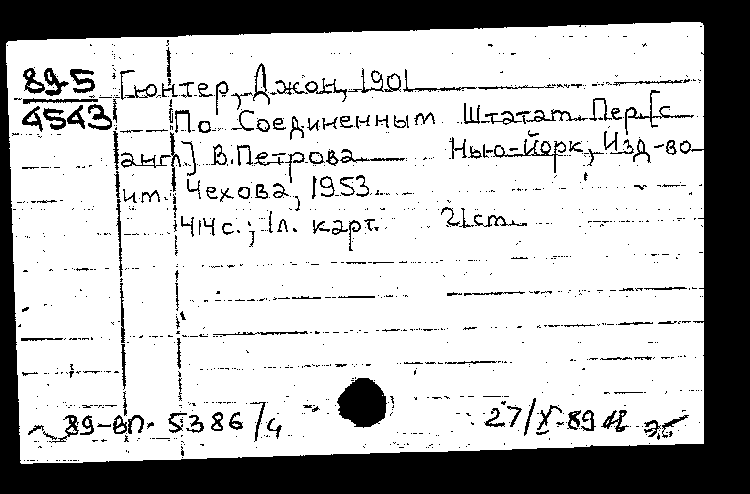 89-5 Гюнтер, Джон, 1901
4543 По Соединенным Штатам. Пер. [с
англ.] В. Петрова Нью-Йорк, Изд-во
им. Чехова, 1953.
414 с.; 1 л. карт. 21 cm.
89-вп. 5386/4 27/X-89